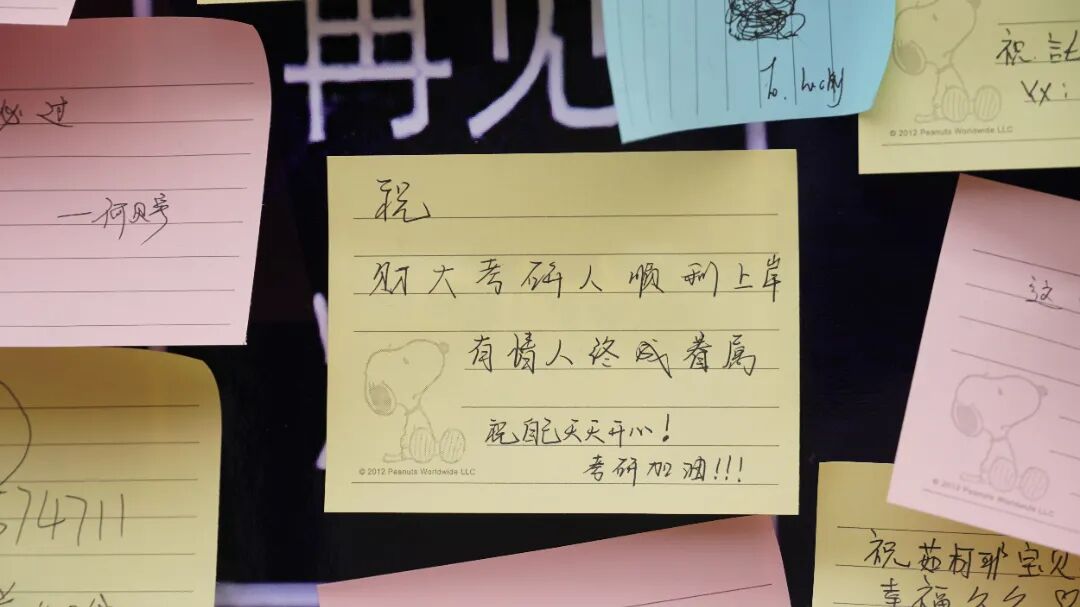 再见
To. lucky
祝
© 2012 Peanuts Worldwide LLC
必过
——何贝宁
祝
财大考研人顺利上岸
有情人终成眷属
祝自己天天开心!
考研加油!!!
© 2012 Peanuts Worldwide LLC
这
© 2012 Peanuts Worldwide LLC
574711
祝茹柯耶宝贝
幸福久久♡